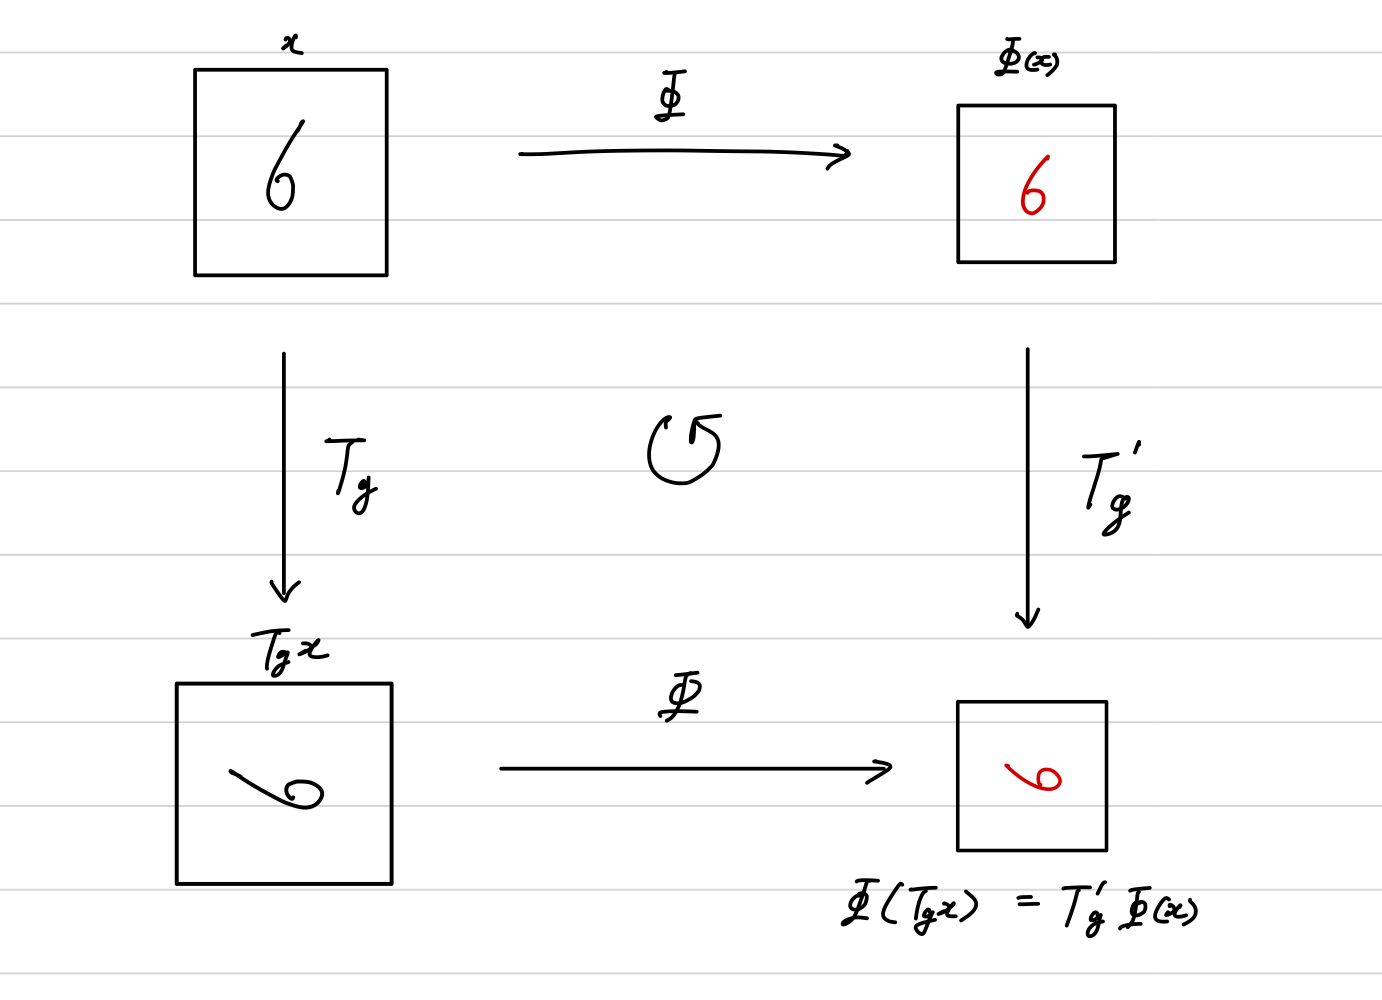 x
Φ
Φ(x)
6
6
T_g
T_g'
T_g x
Φ
6
6
Φ(T_g x) = T_g' Φ(x)